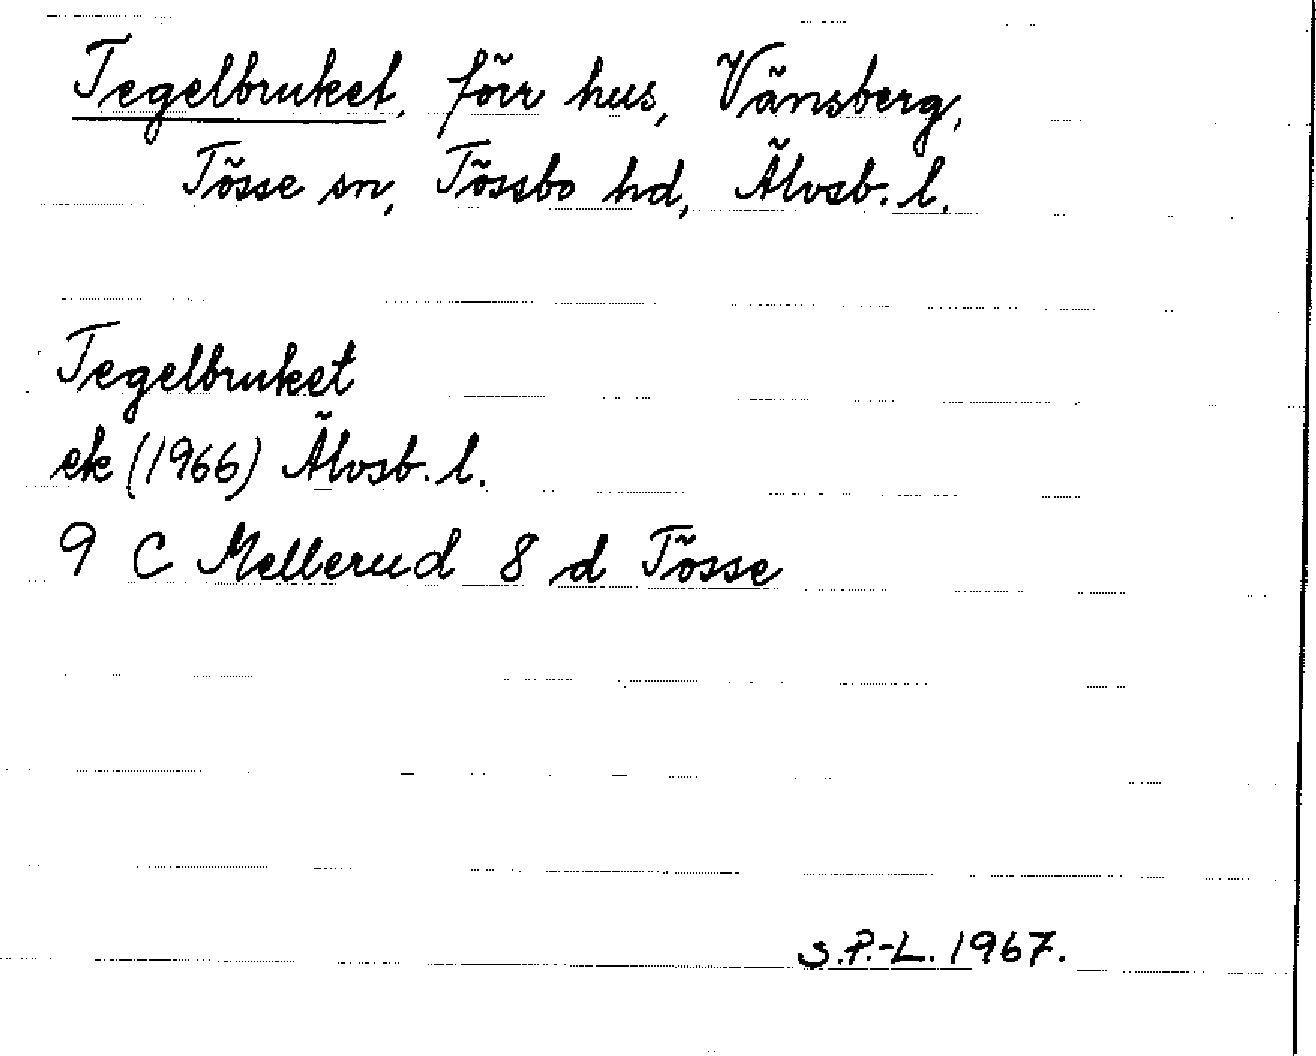 Tegelbruket, förr hus, Vänsberg,
Tösse sn, Tössbo hd, Älvsb. l.
Tegelbruket
ek (1966) Älvsb. l.
9 C Mellerud 8 d Tösse
S.P.-L. 1967.